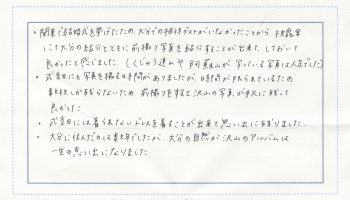 ・関東で結婚式を挙げたため、大分での招待ゲストがいなかったことから、披露宴
にて大分の紹介とともに前撮り写真を紹介することが出来、してがいて
良かったと感じました。(くじゅう連山や阿蘇山が写っている写真は人気でした)
・式当日にも写真を撮る時間がありましたが、時間が限られているため
数枚しか残らないため、前撮りをすると沢山の写真が手元に残って
良かった
・式当日には着られないドレスを着ることが出来て思い出に残りました。
・大分に住んだのは数年でしたが、大分の自然が沢山のアルバムは
一生の思い出になりました